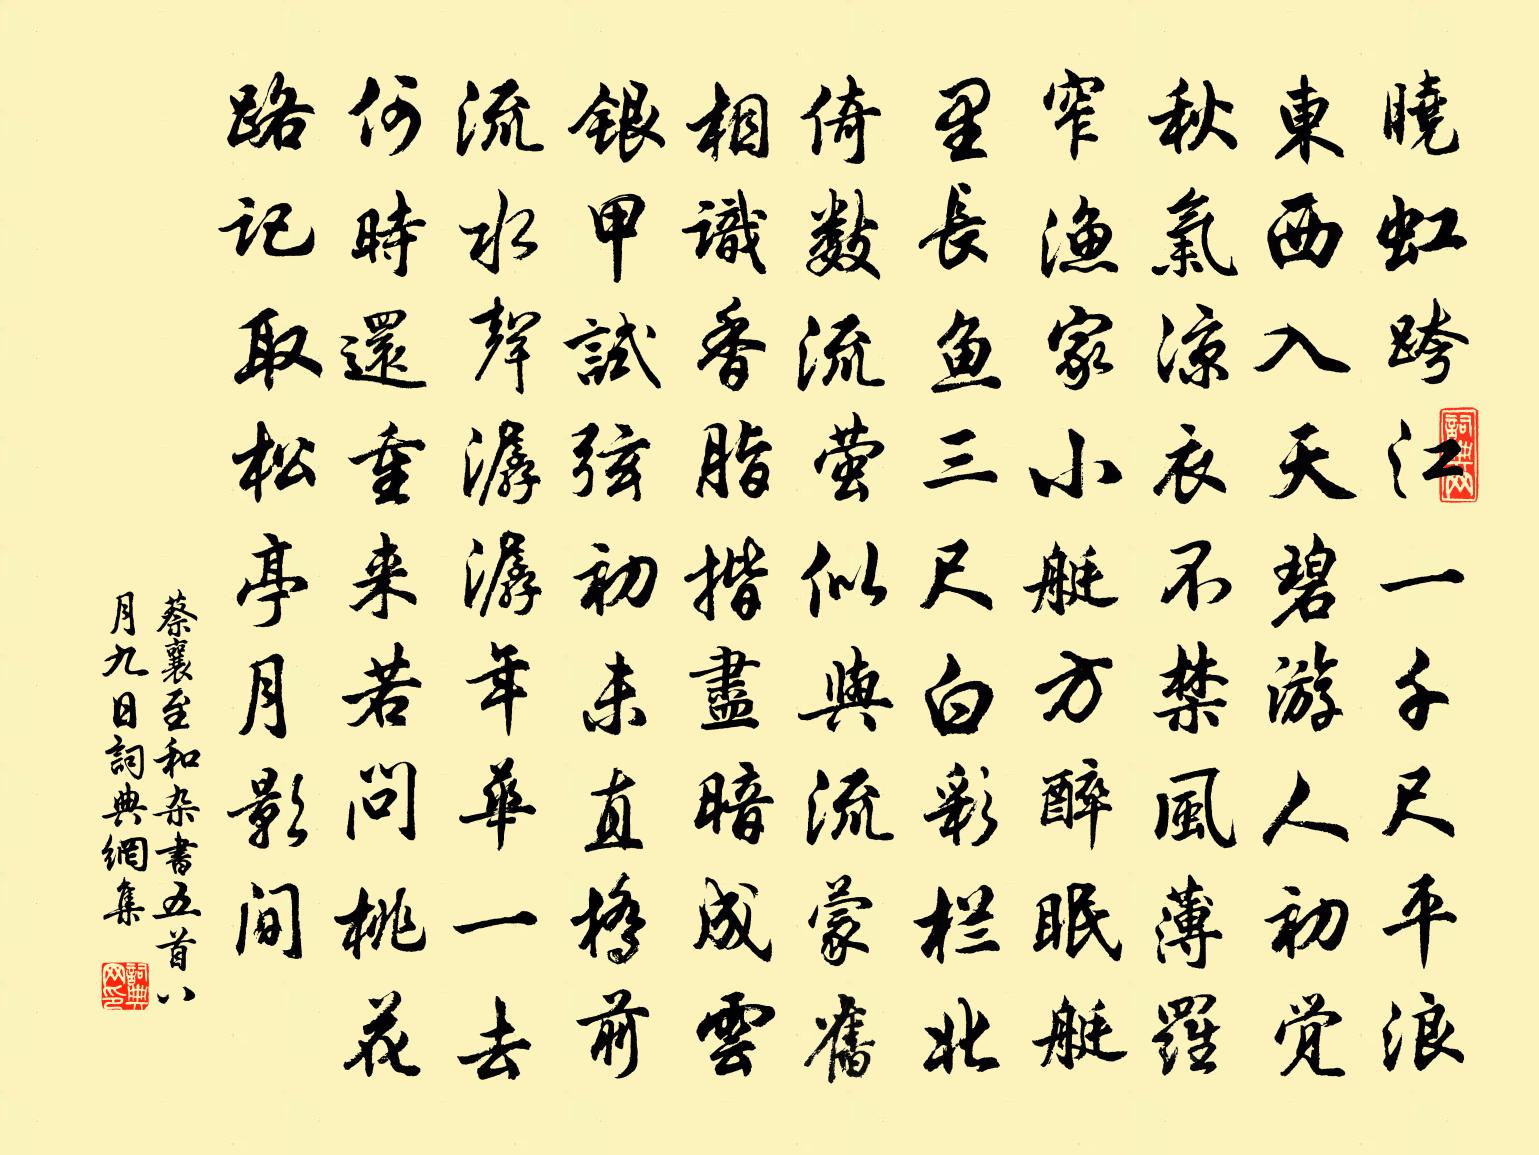 曉虹跨江一千尺平浪
東西入天碧游人初觉
秋氣凉衣不禁風薄羅
窄漁家小艇方醉眠艇
里長魚三尺白彩栏北
倚數流萤似與流蒙舊
相識香脂揩盡暗成雲
銀甲試弦初未直橋前
流水聲潺潺年華一去
何時還重来若問桃花
路記取松亭月影間
蔡襄至和杂書五首八
月九日詞典網集
詞典网
詞典网印